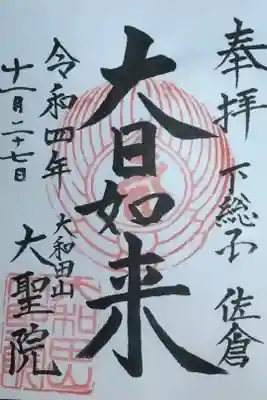 奉拝 下総国 佐倉
大日如来
令和四年
十一月二十七日
大和田山
大聖院